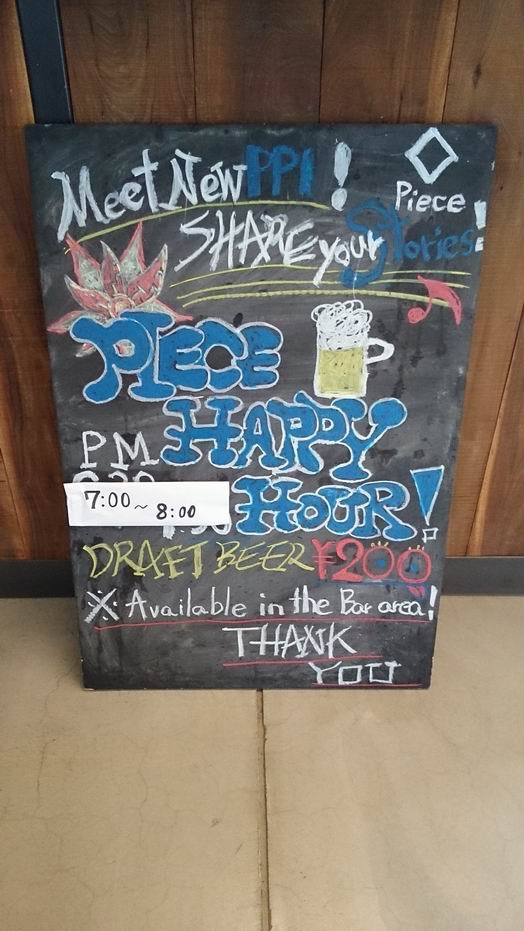 Meet New PPl !
Piece !
SHARE your Stories!
PIECE
HAPPY
PM
7:00 ~ 8:00
HOUR!
DRAFT BEER ¥200
※ Available in the Bar area!
THANK
YOU